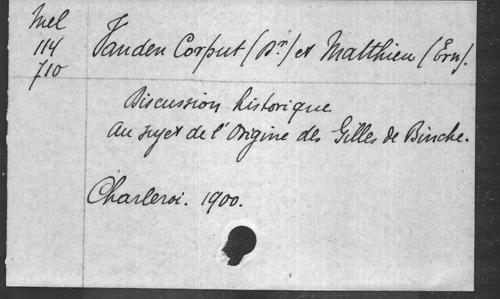 Mel
114
710
Vanden Corput (Dr.) et Matthieu (Ern).
Discussion historique
au sujet de l'Origine des Gilles de Binche.
Charleroi. 1900.